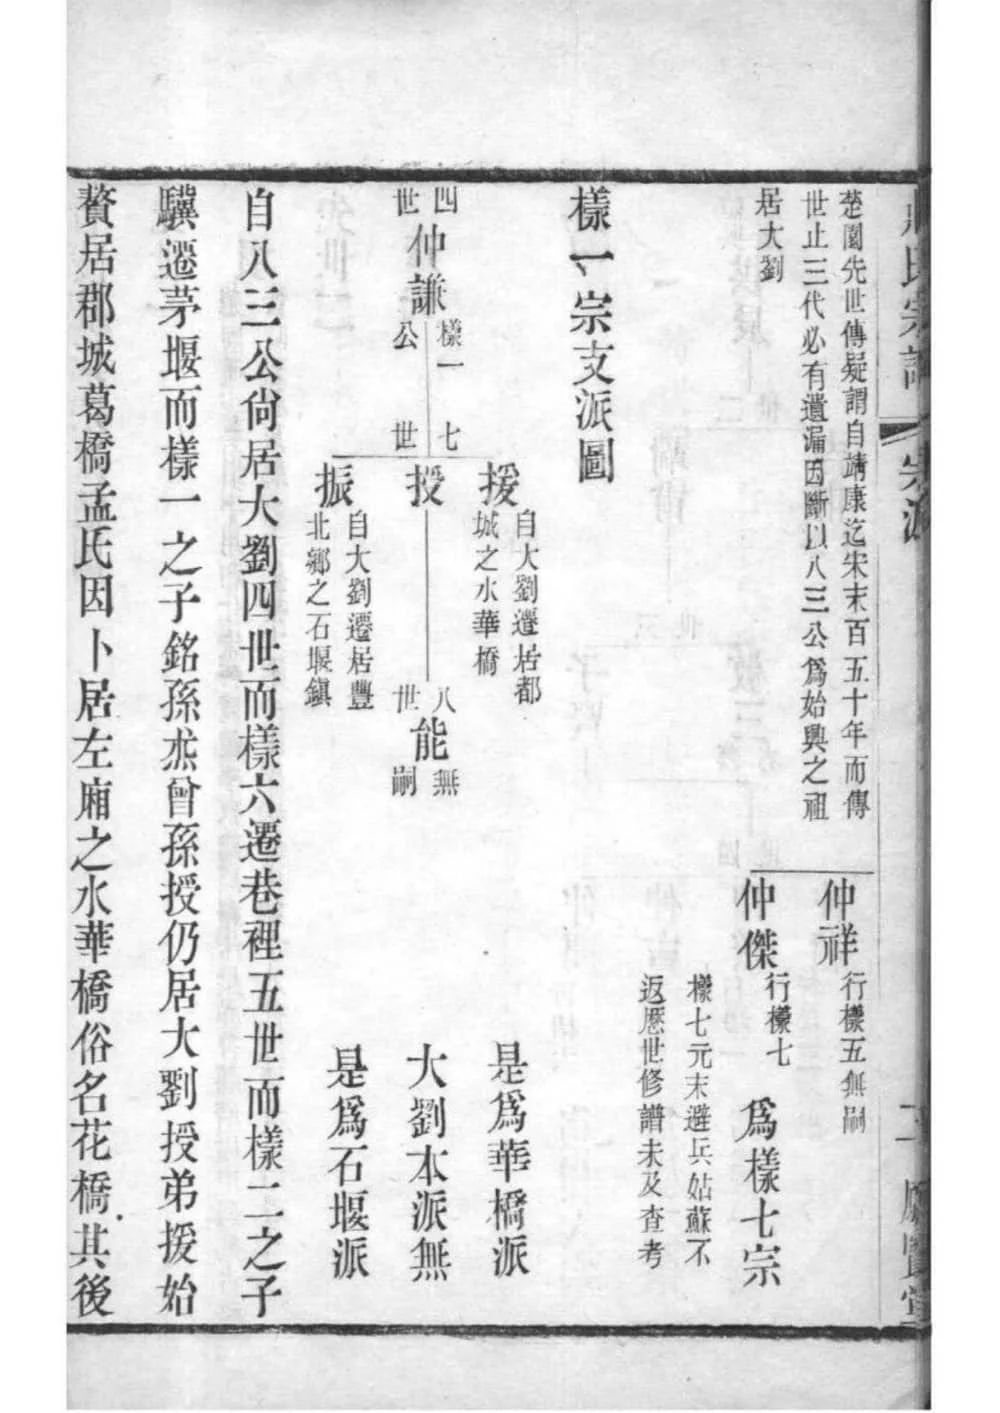 氏宗譜
宗派
二
楚園先世傳疑謂自靖康迄宋末百五十年而傳
世止三代必有遺漏因斷以八三公爲始興之祖
居大劉
仲祥
行樣五無嗣
仲傑
行樣七
爲樣七宗
樣七元末避兵姑蘇不
返歷世修譜未及查考
樣一宗支派圖
四世
仲謙
樣一公
七世
援
自大劉遷居都
城之水華橋
是爲華橋派
授
八世
能
無嗣
大劉本派無
振
自大劉遷居豐
北鄉之石堰鎮
是爲石堰派
自八三公尙居大劉四世而樣六遷巷裡五世而樣二之子
驥遷茅堰而樣一之子銘孫烝曾孫授仍居大劉授弟援始
贅居郡城葛橋孟氏因卜居左廂之水華橋俗名花橋其後